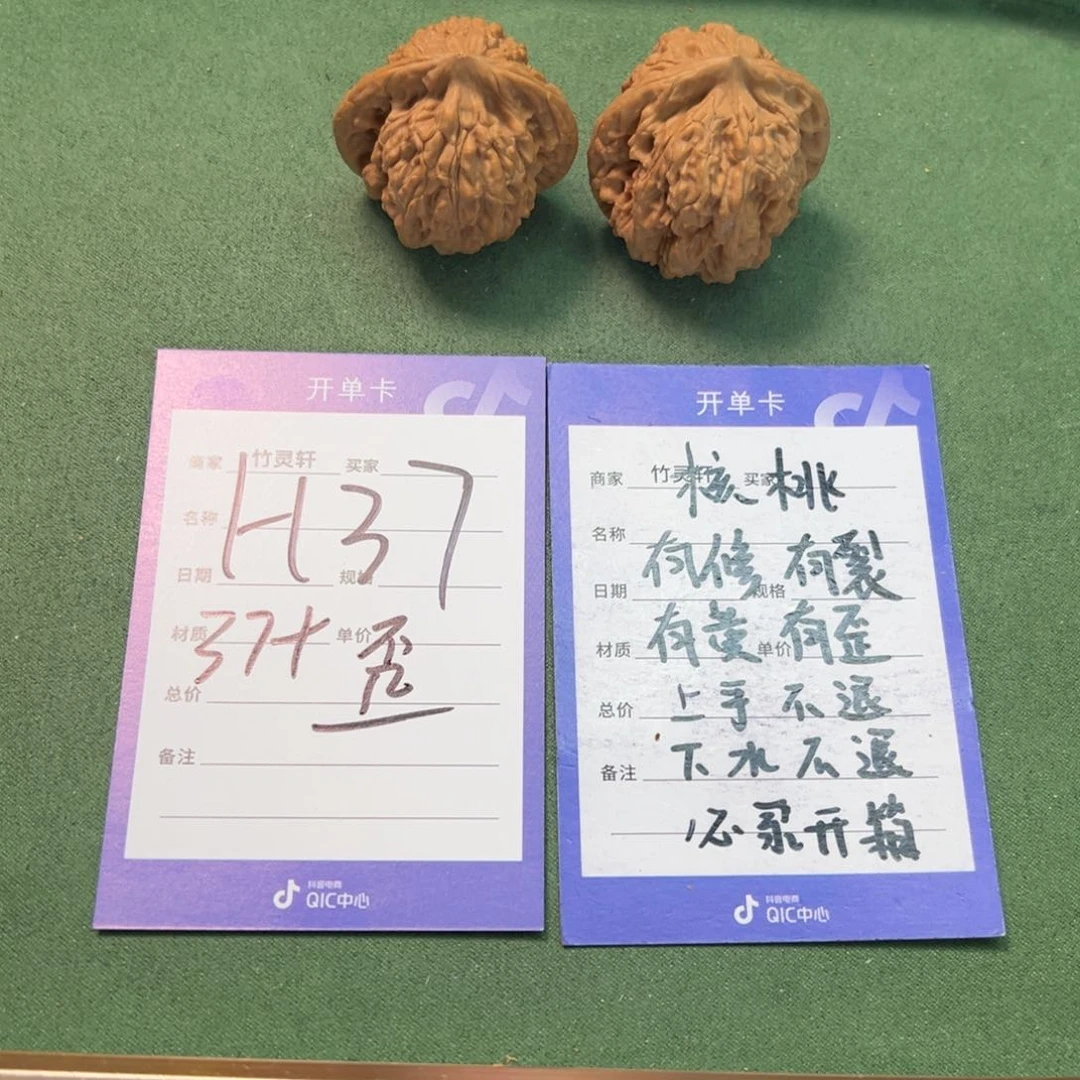 开单卡
商家 竹灵轩 买家
名称
H37
日期 规格
材质 单价
37+ 歪
总价
备注
抖音电商
QIC中心
开单卡
商家 竹灵轩 买家
核桃
名称
有修 有裂
日期 规格
有黄 有歪
材质 单价
上手不退
总价
下水不退
备注
必录开箱
抖音电商
QIC中心